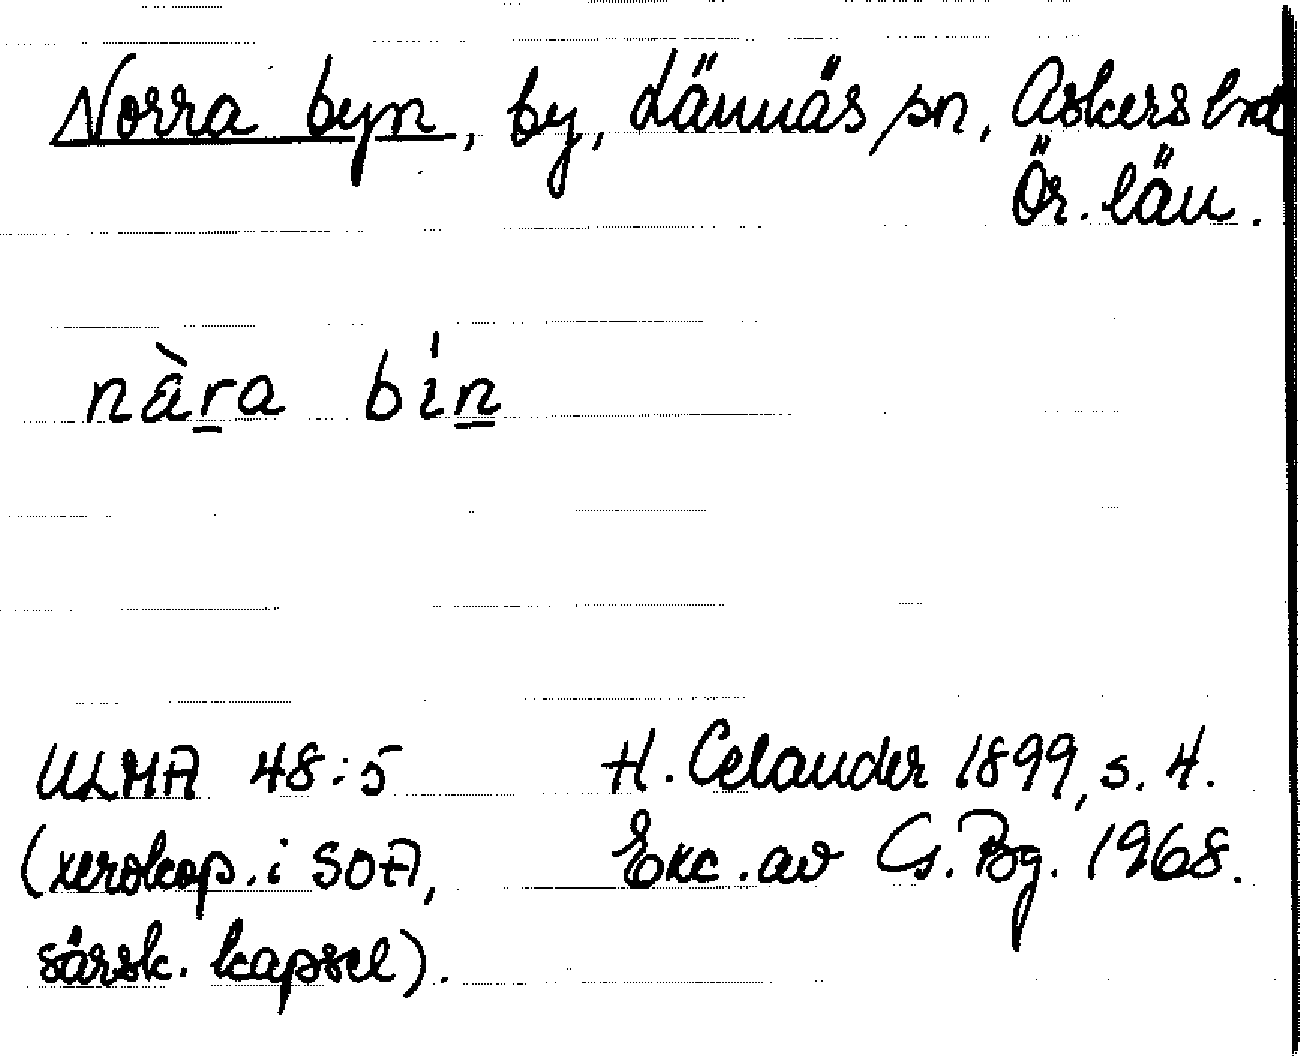 Norra byn, by, Lännäs sn, Askers hd
Ör. län.
nàra bín
ULMA 48:5 H. Celander 1899, s. 4.
(xerokop. i SOA, Exc. av G. Bg. 1968.
särsk. kapsel).